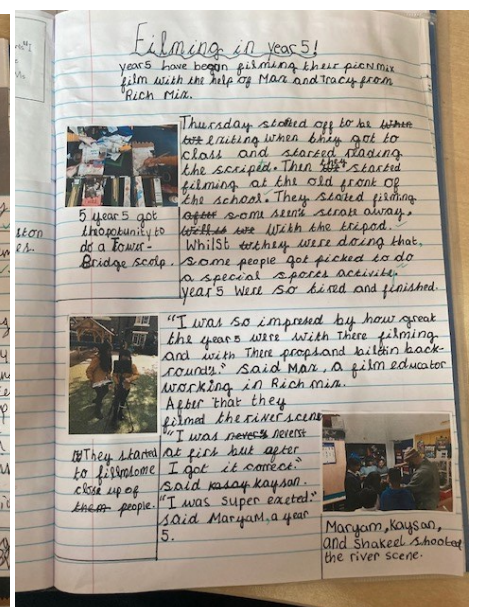 Filming in year 5!
year5 have began filming their picNmix
film with the help of Max and Tracy from
Rich Mix.
Thursday stated off to be when
but exiting when they got to
class and started reading
the scriped. Then they started
filming at the old front of
the school. They stated filming
after some seen's strate away,
with the tripod.
Whilst they were doing that,
some people got picked to do
a special sports activity.
year 5 were so tired and finished.
5 year 5 got
the oppotunity to
do a Tower-
Bridge sculp.
"I was so impresed by how great
the year 5 were with There filming
and with There props and bildin back-
round's." said Max, a film educator
working in Rich mix.
After that they
filmed the river scene
"I was never's neverst
at firs but after
I got it correct."
said kasay kaysan.
"I was super exeted."
said Maryam, a year
5.
They started
to fillm some
close up of
them people.
Maryam, Kaysan,
and Shakeel shooted
the river scene.